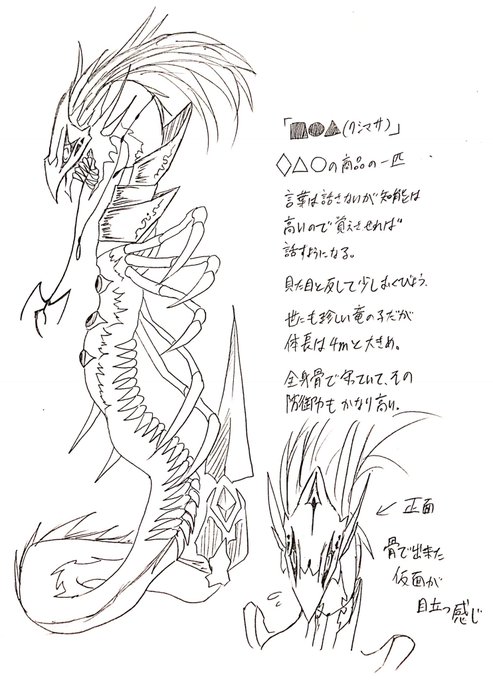 「■●▲(クシマサ)」
◇△○の商品の一匹
言葉は話さないが知能は
高いので覚えさせれば
話すようになる。
見た目と反して少しおくびょう。
世にも珍しい竜の子だが
体長は4mと大きめ。
全身骨で守っていて、その
防御力もかなり高い。
← 正面
骨で出来た
仮面が
目立つ感じ